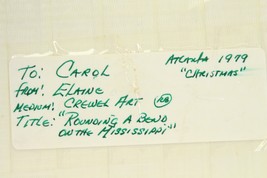 To: Carol
From: Elaine
Medium: Crewel Art
Title: "Rounding a Bend
on the Mississippi"
Atlanta 1979
"Christmas"